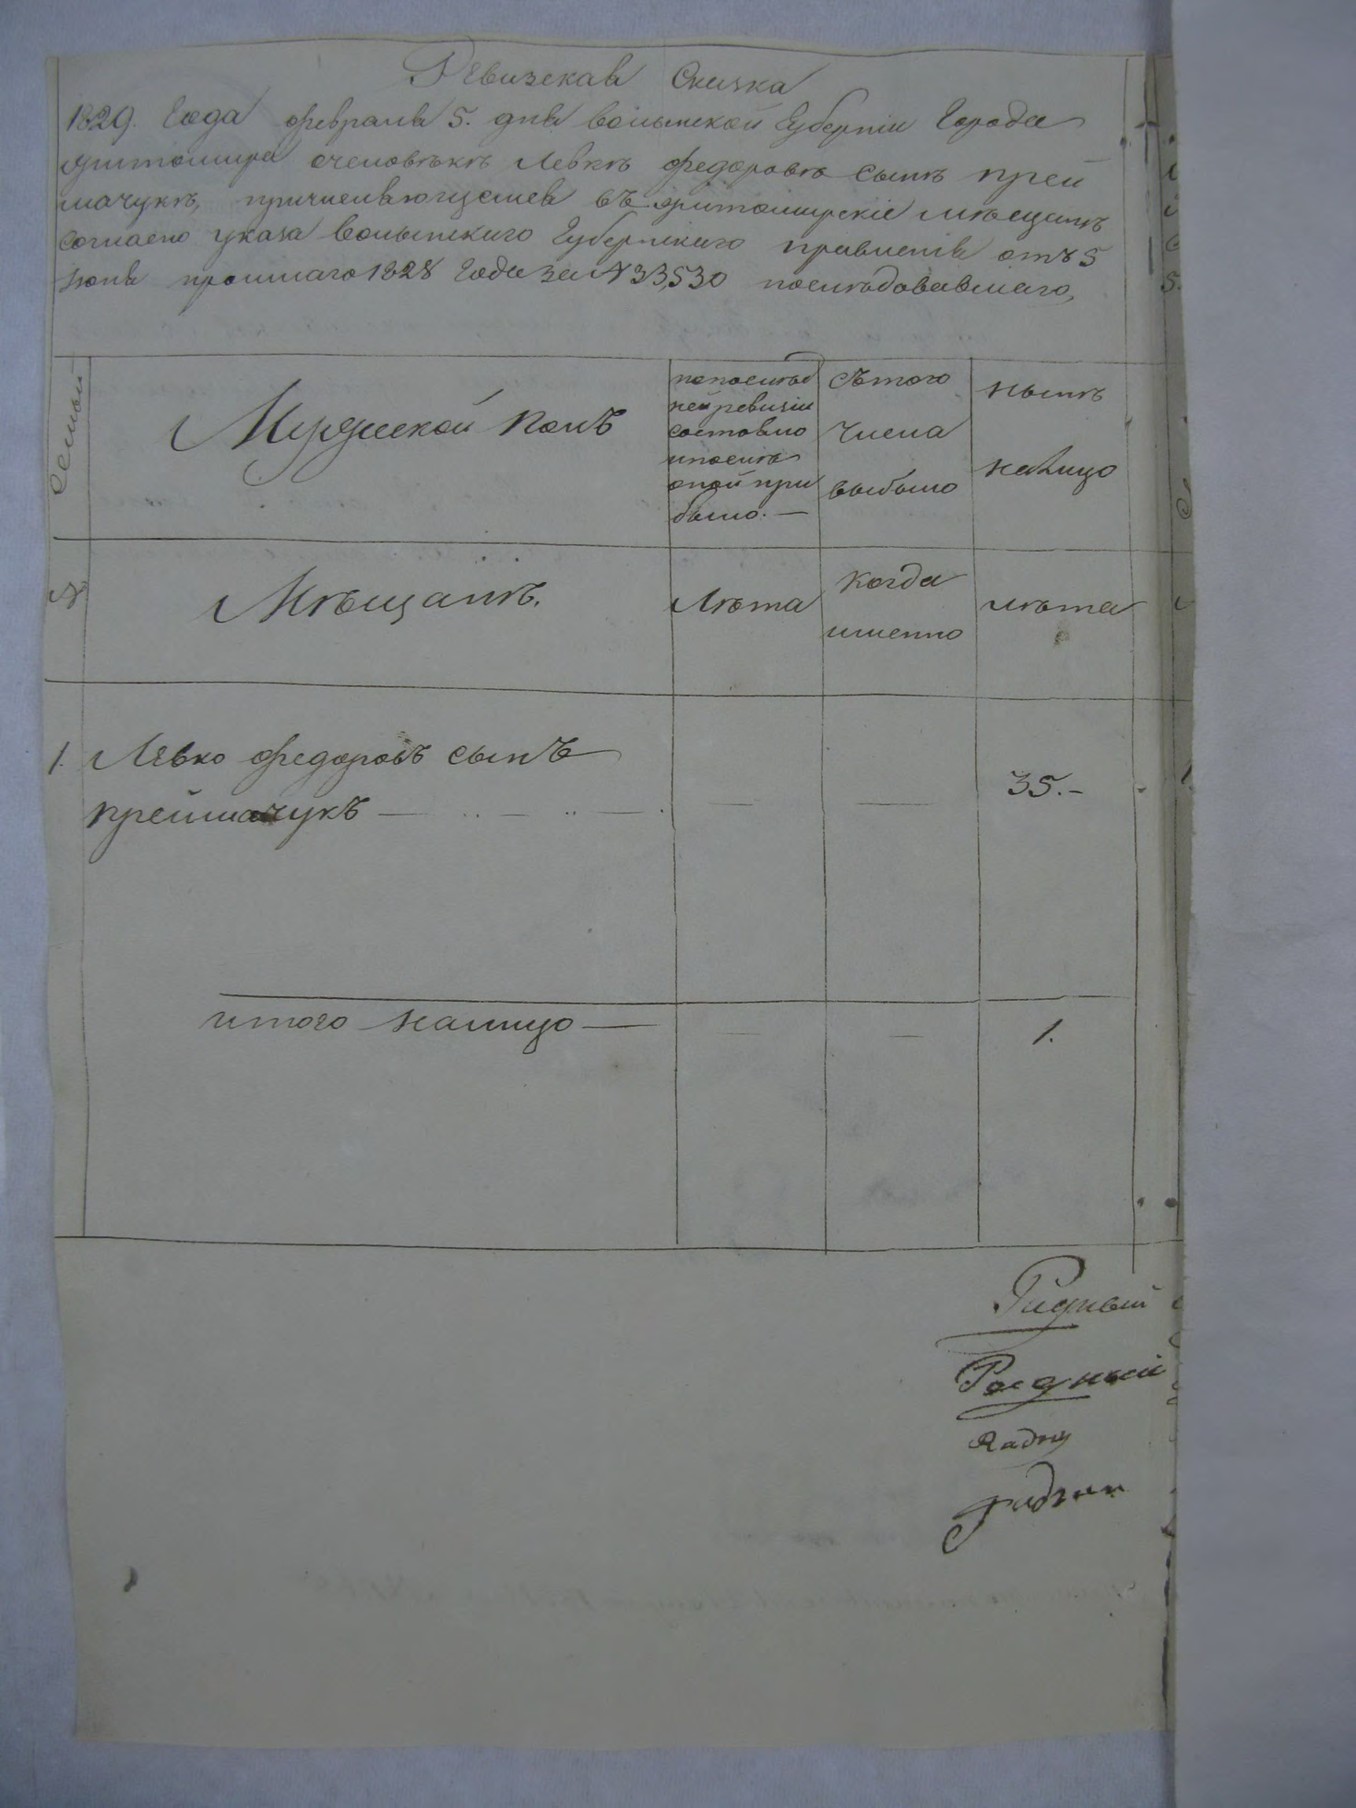 Ревизская Скаска
1829. Года февраля 5. дня волынской Губернїи Города
житомира очеловѣкѣ Левкѣ федоровѣ сынѣ прей
мачукѣ, причисляющемся въ житомирскїе мѣщанѣ
согласно указа волынского Губернского правленїя отъ 5
юня прошлаго 1828 Года за № 33,530 послѣдовавшаго,
Семьи
Мужеской полъ
попослѣд
ней ревизїи
состояло
ипослѣ
оной при
было. —
Съ того
числа
выбыло
нынѣ
налицо
№
Мѣщанѣ.
Лѣта
когда
именно
лѣта
1. Левко федоровъ сынъ
преймачукъ — — — 35. -
итого налицо — — — 1.
Ратный
Radny